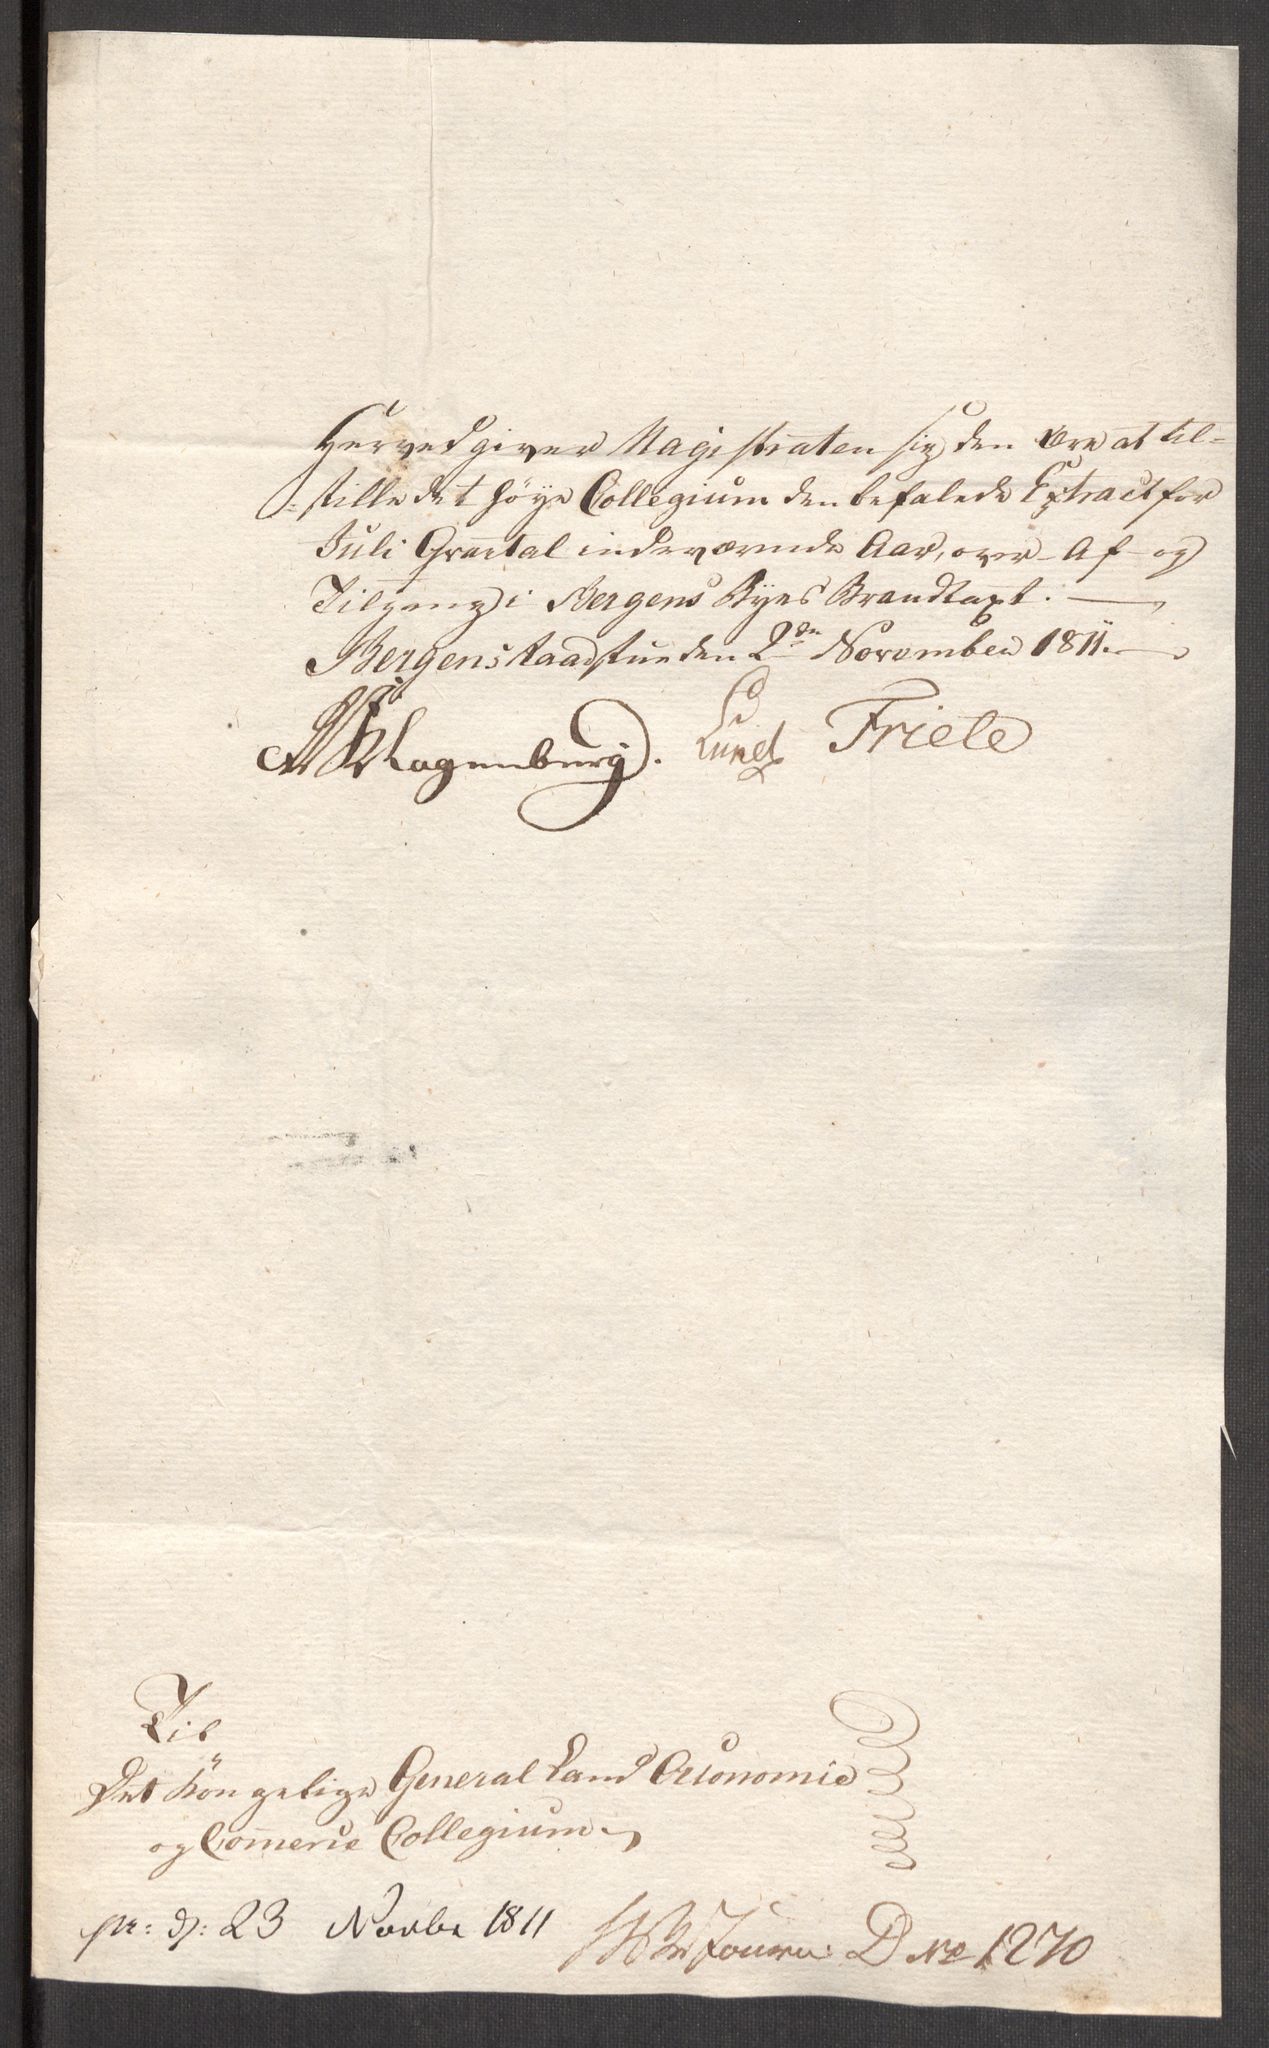 Herved giver Magistraten sig den Ære at til-
-stille det høye Collegium den befalede Extract for
Juli Qvartal indeværende Aar, over Af- og
Tilgang i Bergens Byes Brandtaxt.
Bergens Raadstue den 2den November 1811.
Klagenberg. Lund Friele
Til
Det Kongelige General Land Oeconomie
og Com̄erce Collegium
pr: d: 23 Novbr 1811
Journ: D No 1270